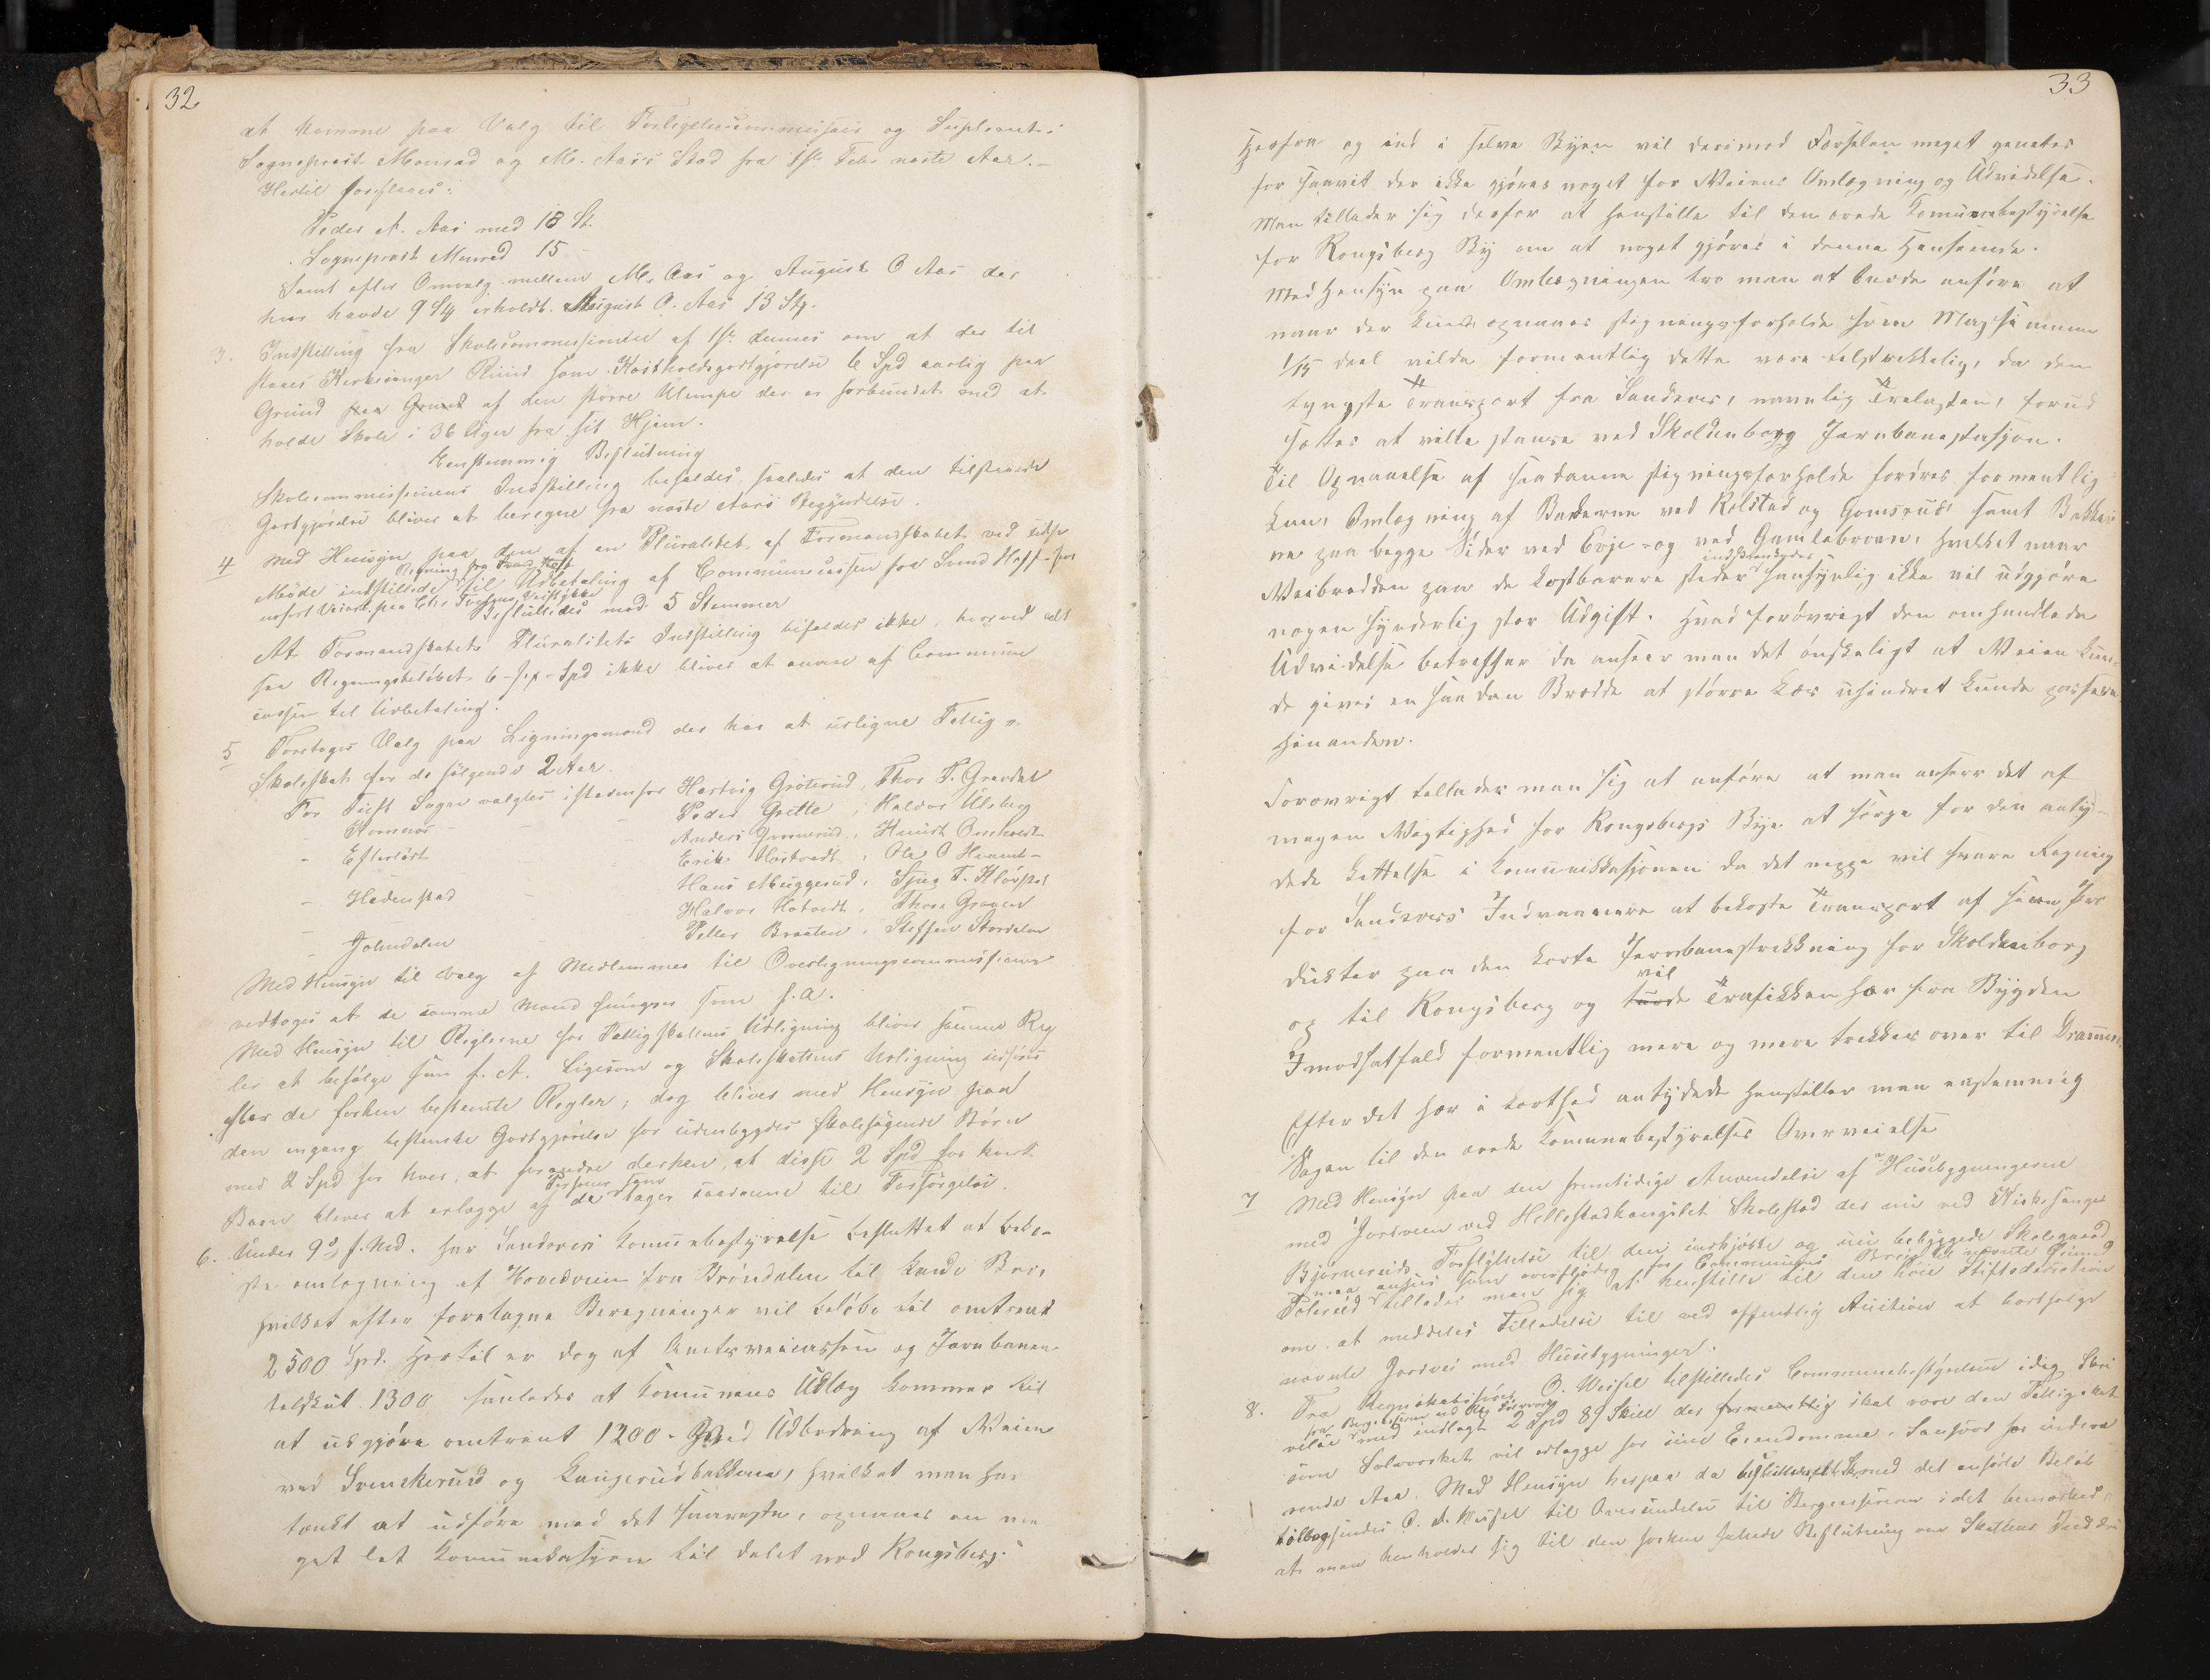 32
at komme paa Valg til Forligelsescommissair og Supleant i
Sogneprest Monrad og M. Aas's Sted fra 1ste Febr næste Aar.-
Hertil foreslaaes:
Peder A. Aas med 18 St.
Sogneprest Monrad 15 -
samt efter Omvalg mellem M. Aas og August O Aas der
hver havde 9 St erholdt August O. Aas 13 St.
3. Indstilling fra Skolecommissionen af 1ste dennes om at der til
staaes Kirkesanger Ruud som Kostholdsgodtgjørelse 6 Spd aarlig paa
Grund paa Grund af den større Ulempe der er forbundet med at
holde Skole i 36 Uger fra sit Hjem.
Eenstemmig Beslutning
Skolecommissionens Indstilling bifaldes, saaledes at den tilstaaede
Godtgjørelse bliver at beregne fra næste Aars Begyndelse.
4 Med Hensyn paa den af en Pluralitet af Formandskabet ved sidste
Regning fra Svend Hoff
Møde indstillede til Udbetaling af Communecassen for Svend Hoff for
Besluttedes med 5 Stemmer
At Formandskabets Pluralitets Indstilling bifaldes ikke, hvorved alt
saa Regningsbeløbet 6 - sex - Spd ikke bliver at anvise af Commune
cassen til Udbetaling.
5 Foretoges Valg paa Ligningsmænd der har at udligne Fattig &
Skoleskat for de følgende 2 Aar.
For Tuft Sogn valgtes istedenfor Hartvig Grøterud, Thor T. Gravdal
- Komnæs - - - Peder Grette, Halvor Ulsberg
- Efteløst - - Anders Gromerud, Knud Omholt
Erik Hostvedt, Ole O Hvaml-
- Hedenstad - Hans Muggerud, Syver T. Kløvstad
Halvor Hotvedt, Thore Graver
- Jondalen - - Peller Braaten, Steffen Stordalen
Med Hensyn til Valg af Medlemmer til Overligningscommissionen
vedtoges at de samme Mænd fungerer som f. A.
Med Hensyn til Reglerne for Fattigskattens Udligning bliver samme Reg
ler at befølge som f. A. Ligesom og Skoleskattens Udligning udføres
efter de forhen bestemte Regler, dog bliver med Hensyn paa
den engang bestemte Godtgjørelse for udenbygdes skolesøgende Børn
med 2 Spd for hver, at forandre derhen, at disse 2 Spd for hvert
Personer som
Barn bliver at erlægge af de tager saadanne til Forsørgelse.
6. Under 9de f. Md. har Sandsværs Komunebestyrelse besluttet at beko-
ste omlægning af Hovedveien fra Brøndalen til Lande Bro,
hvilket efter foretagne Beregninger vil beløbe til omtrent
2500 Spd. Hertil er dog af Amtsveicassen og Jernbanen
tilskut. 1300 saaledes at Komunens Udlæg kommer til
at udgjøre omtrent 1200. - Ved Udbedring af Veien
ved Svenskerud og Kongerudbakkene, hvilket man har
tænkt at udføre med det snareste, opnaaes en me
get let Komunikasjon til dalet ved Kongsberg.
33
Herfra og ind i selve Byen vil derimod Færselen meget generes
for saavit der ikke gjøres noget for Veiens Omlægning og Udvidelse.
Man tillader sig derfor at henstille til den ærede Komunebestyrelse
for Kongsberg By om at noget gjøres i denne Henseende.
Med Hensyn paa Omlægningen tro man at burde anføre at
naar der kunde opnaaes stigningsforholde som Maxsimum
1/15 deel vilde formentlig dette være tilstrekkelig, da den
tyngste Transport fra Sandsver, navnlig Trelasten, forud
sættes at ville stanse ved Skoldenborg Jernbanestasjon.
Til Opnaaelse af saadanne stigningsforholde fordres formentlig
kun, Omlægning af Bakkerne ved Kolstad og Gomsrud, samt Bakker
ne paa begge Sider ved Evje - og ved Gamlebroen, hvilket naar
indskrenkedes
Veibredden paa de kostbarere steder sansynlig ikke vil udgjøre
nogen synderlig stor Udgift. Hvad forøvrigt den omhandlede
Udvidelse betreffer da anseer man det ønskeligt at Veien kun-
de gives en saadan Bredde at større Læs uhindret kunde passere
hinanden.
Forøvrigt tillader man sig at anføre at man anseer det af
megen Vigtighed for Kongsbergs Bye at sørge for den anty-
dede Lettelse i Komunikkasjonen da det neppe vil svare Regning
for Sandsvers Indvaanere at bekoste Transport af sine Pro
dukter paa den korte Jernbanestrekkning for Skoldenborg
vil
og til Kongsberg og turde Trafikken her fra Bygden
I modsatfald formentlig mere og mere trekkes over til Drammen.
Efter det her i korthed antydede henstiller man enstemmig
Sagen til den ærede Komunebestyrelses Overveielse
7 Med Hensyn paa den fremtidige Anvendelse af Husebygningerne
med Jordveien ved Hellestadhaugslet Skolestad der nu ved Kirkesanger
Bjørneruds Forflyttelse til den indkjøbte og nu bebyggede Skolegaard
maa ansees som overflødig for Communens Brug til nævnte Øiemed
Tolerud tillader man sig at henstille til den høie Stiftsdirection
om at meddeles Tilladelse til ved offentlig Auction at bortsælge
nævnte Jordvei med Husebygninger.
8. Fra Regnskabsfører O. Weisel tilstilledes Communebestyrelsen idag Skri
velse med indlagt 2 Spd 89 Skill der formentlig skal være den Fattigskat
som Sølvverket vil erlægge for sine Eiendomme i Sandsver for indevæ
rende Aar. Med Hensyn herpaa da besluttedes at med det anførte Beløb
tilbagesendes O. A. Weisel til Oversendelse til Bergcassereren idet bemærkedes
at man henholder sig til den forhen fattede Beslutning om Skattens